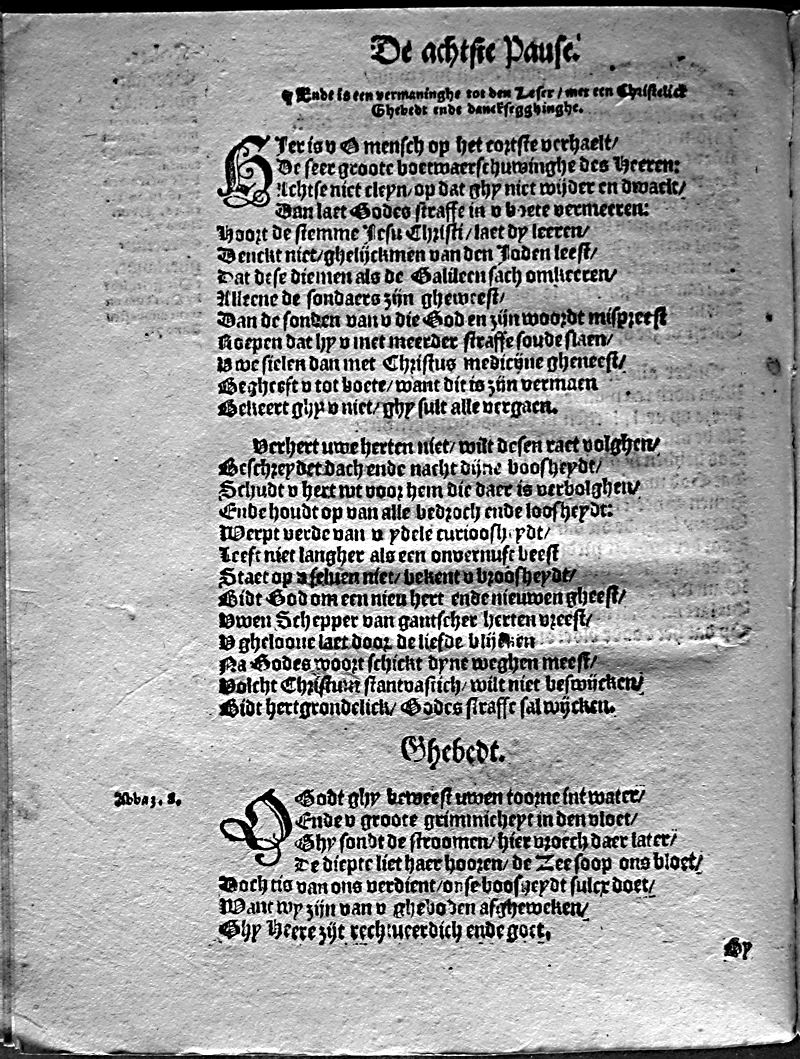 De achtste Pause.
¶ Ende is een vermaninghe tot den Leser / met een Christelick
Ghebedt ende danckseggbinghe.
HIer is v O mensch op het cortste verhaelt /
De seer groote boetwaerschuwinghe des Heeren:
Achtse niet cleyn / op dat ghy niet wijder en dwaelt /
Dan laet Godes straffe in v boete vermeeren:
Hoort de stemme Jesu Christi / laet dy leeren /
Denckt niet / ghelijckmen van den Joden leest /
Dat dese diemen als de Galileen sach omkeeren /
Alleene de sondaers zijn gheweest /
Dan de sonden van v die God en zijn woordt mispreest
Roepen dat hy v met meerder straffe soude slaen /
Vwe sielen dan met Christus medicijne gheneest /
Begheeft v tot boete / want dit is zijn vermaen
Bekeert ghy v niet / ghy sult alle vergaen.
Verhert uwe herten niet / wilt desen raet volghen /
Beschreydet dach ende nacht dijne boosheydt /
Schudt v hert wt voor hem die daer is verbolghen /
Ende houdt op van alle bedroch ende loosheydt:
Werpt verde van v ydele curioosheydt /
Leeft niet langher als een onvernuft beest
Staet op v selven niet / bekent v broosheydt /
Bidt God om een nieu hert ende nieuwen gheest /
Vwen Schepper van gantscher herten vreest /
V gheloove laet door de liefde blijcken
Na Godes woort schickt dyne weghen meest /
Volcht Christum stantvastich / wilt niet beswijcken /
Bidt hertgrondelick / Godes straffe sal wijcken.
Ghebedt.
Abba3. 8.
O Godt ghy beweest uwen toorne int water /
Ende v groote grimmicheyt in den vloet /
Ghy sondt de stroomen / hier vroech daer later /
De diepte liet haer hooren / de Zee soop ons bloet /
Doch tis van ons verdient / onse boosheydt sulcx doet /
Want wy zijn van v gheboden afgheweken /
Ghy Heere zijt rechtveerdich ende goet.
Gy